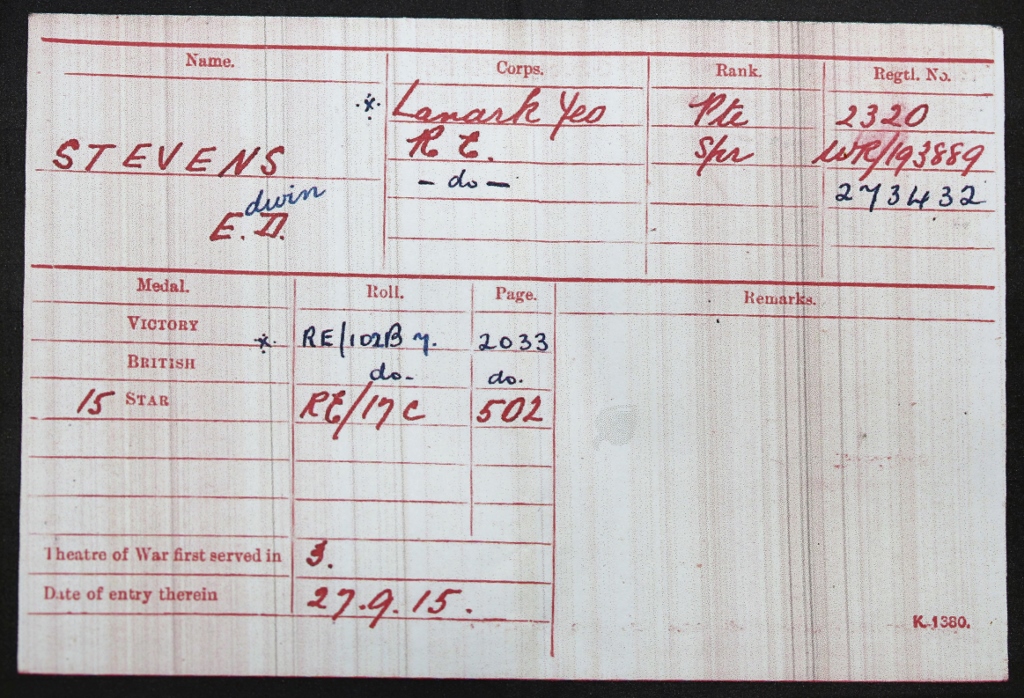 Name. Corps. Rank. Regtl. No.
* Lanark Yeo Pte 2320
STEVENS R E. Spr WR/193889
- do - 273432
dwin
E. D.
Medal. Roll. Page. Remarks.
VICTORY * RE/102B 7. 2033
BRITISH do- do.
15 STAR RE/17 C 502
Theatre of War first served in 3.
Date of entry therein 27.9.15.
K. 1380.